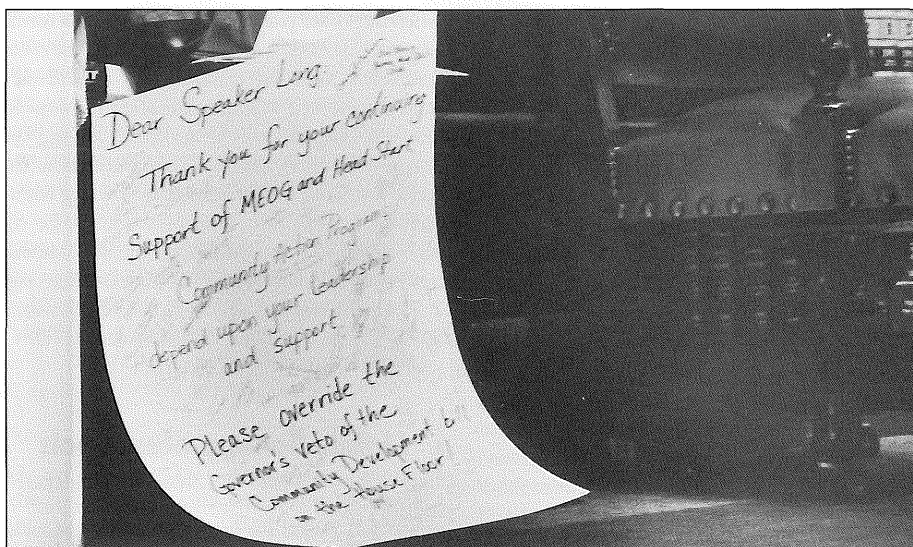 Dear Speaker Long:
Thank you for your continuing
Support of MEOG and Head Start
Community Action Programs
depend upon your leadership
and support
Please override the
Governor's veto of the
Community Development
on the House Floor!